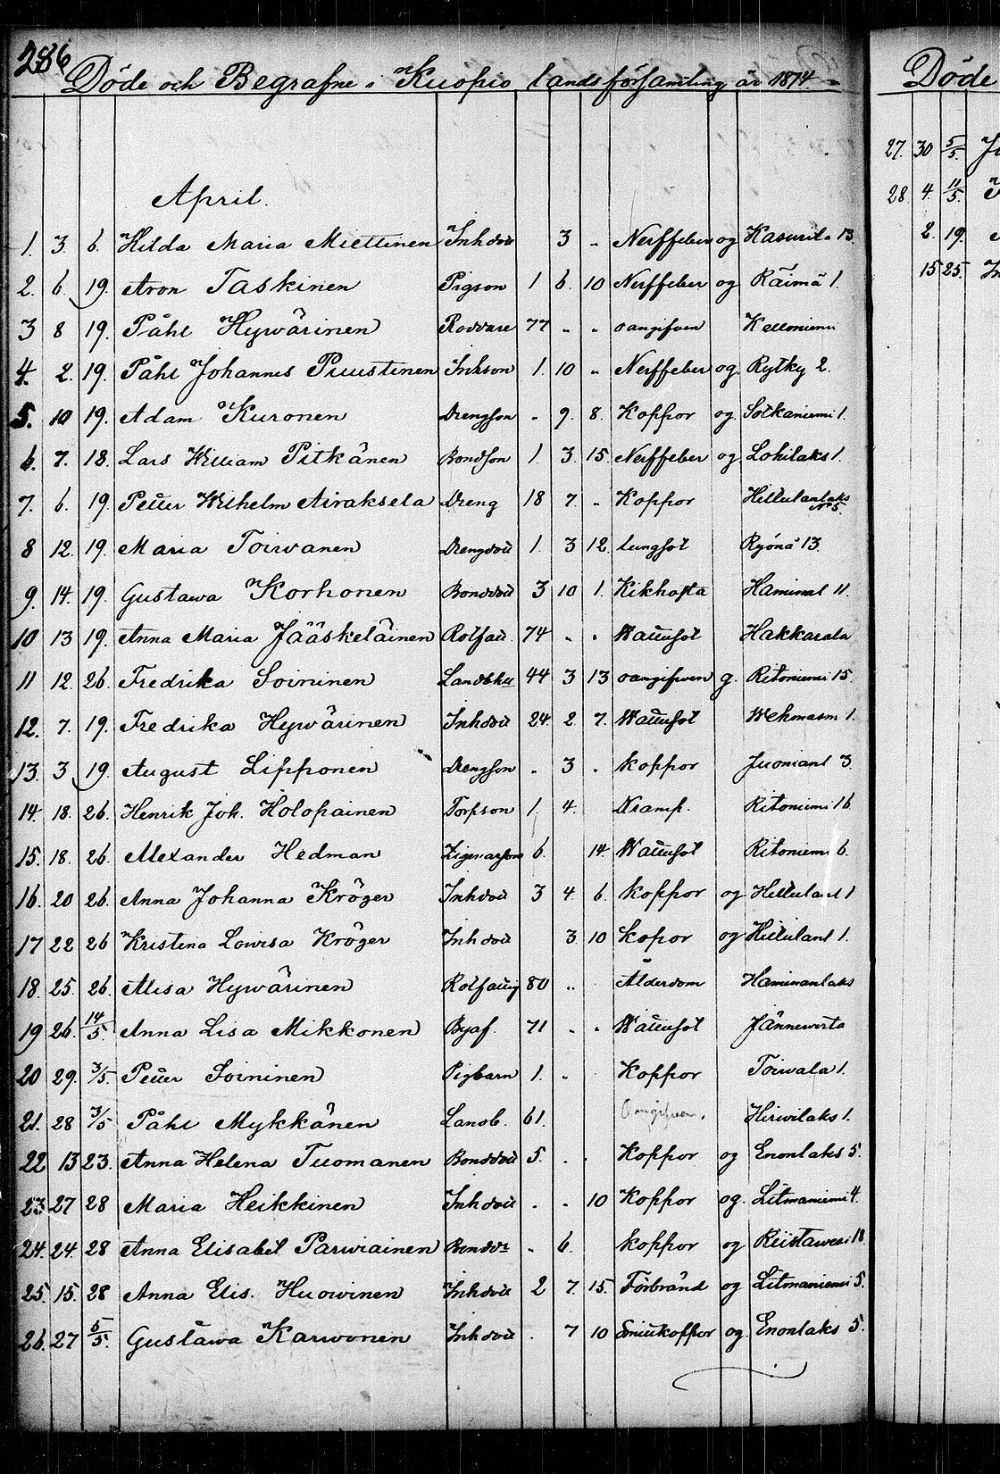 286
Döde och Begrafne i Kuopio landsförsamling år 1874.
April.
1. 3 6. Hilda Maria Miettinen Inhdotr 3 - Nerffeber og Kasurila 13.
2. 6. 19. Aron Taskinen Pigson 1 6. 10 Nerffeber og Räimä 1.
3 8 19. Påhl Hywärinen Roddare 77 - - oangifven Kelloniemi
4. 2. 19. Påhl Johannes Puustinen Inhson 1. 10 - Nerffeber og. Rytky 2.
5. 10 19. Adam Kuronen Drengson - 9. 8. Koppor og Sotkaniemi 1.
6. 7. 18. Lars William Pitkänen Bondson 1. 3. 15. Nerffeber og Lohilaks 1.
7. 6. 19. Petter Wilhelm Airaksela Dreng 18 7. - Koppor Hiltulanlaks No 5.
8 12. 19. Maria Toiwanen Drengdott 1. 3 12. Lungsot Ryönä 13.
9. 14. 19. Gustawa Korhonen Bonddott 3 10 1. Kikhosta Haminal 11.
10 13 19. Anna Maria Jääskeläinen Rotfatt. 74 - . Wattusot Hakkarala
11 12. 26. Fredrika Soininen 44 3 13 oangifwen g. Ritoniemi 15.
12. 7. 19. Fredrika Hywärinen Inhdott 24. 2 7. Wattusot Wehmasm 1.
13. 3 19. August Lipponen Drengson . 3 . koppor Juomant 3.
14. 18. 26. Henrik Joh. Holopainen Torpson 1 4. Kramp. Ritoniemi 16.
15. 18. 26. Alexander Hedman Zigenarson 6. 14. Wattusot Ritoniemi 6.
16. 20 26. Anna Johanna Kröger Inhdott 3 4 6. koppor og Hiltulanl 1
17 22 26 Kristina Lowisa Kröger Inhdott 3. 10 kopor og Hiltulanl 1.
18. 25. 26. Alisa Hywärinen Rotfattig 80 .. Ålderdom Haminanlaks
19 26. 14/5. Anna Lisa Mikkonen Byaf. 71 - . Wattusot Jännewirta
20 29. 3/5. Petter Soininen Pigbarn 1. . Koppor Toiwala 1.
21. 28 3/5 Påhl Mykkänen Landb. 61. Oangifven. Hirwilaks 1.
22 13 23. Anna Helena Tuomanen Bonddott 5. . . Koppor og Enonlaks 5.
23 27 28 Maria Heikkinen Inhdott . . 10 Koppor og. Litmaniemi 4.
24. 24. 28 Anna Elisabet Parwiainen Bonddr - 6. koppor og Riistawesi 18
25. 15. 28 Anna Elis. Huowinen Inhdott 2 7. 15. Förbränd og Litmaniemi 5.
26. 27 5/5. Gustawa Karwonen Inhdott . 7 10 Smittkoppor og Enonlaks 5.
Döde
27. 30 5/5.
28. 4. 11/5.
2. 19.
15 25.